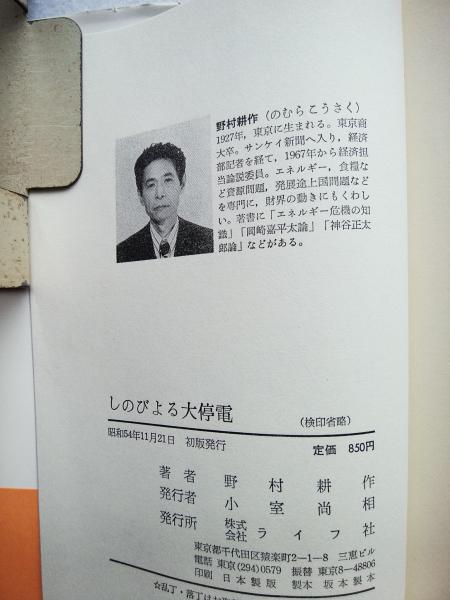 野村耕作(のむらこうさく)
1927年，東京に生まれる。東京商
大卒。サンケイ新聞へ入り，経済
部記者を経て，1967年から経済担
当論説委員。エネルギー，食糧な
ど資源問題，発展途上国問題など
を専門に，財界の動きにもくわし
い。著書に「エネルギー危機の知
識」「岡崎嘉平太論」「神谷正太
郎論」などがある。
しのびよる大停電 (検印省略)
昭和54年11月21日 初版発行 定価 850円
著者 野村耕作
発行者 小室尚相
発行所 株式会社ライフ社
東京都千代田区猿楽町2-1-8 三恵ビル
電話 東京(294)0579 振替 東京8-48806
印刷 日本製版 製本 坂本製本
☆乱丁・落丁はお取